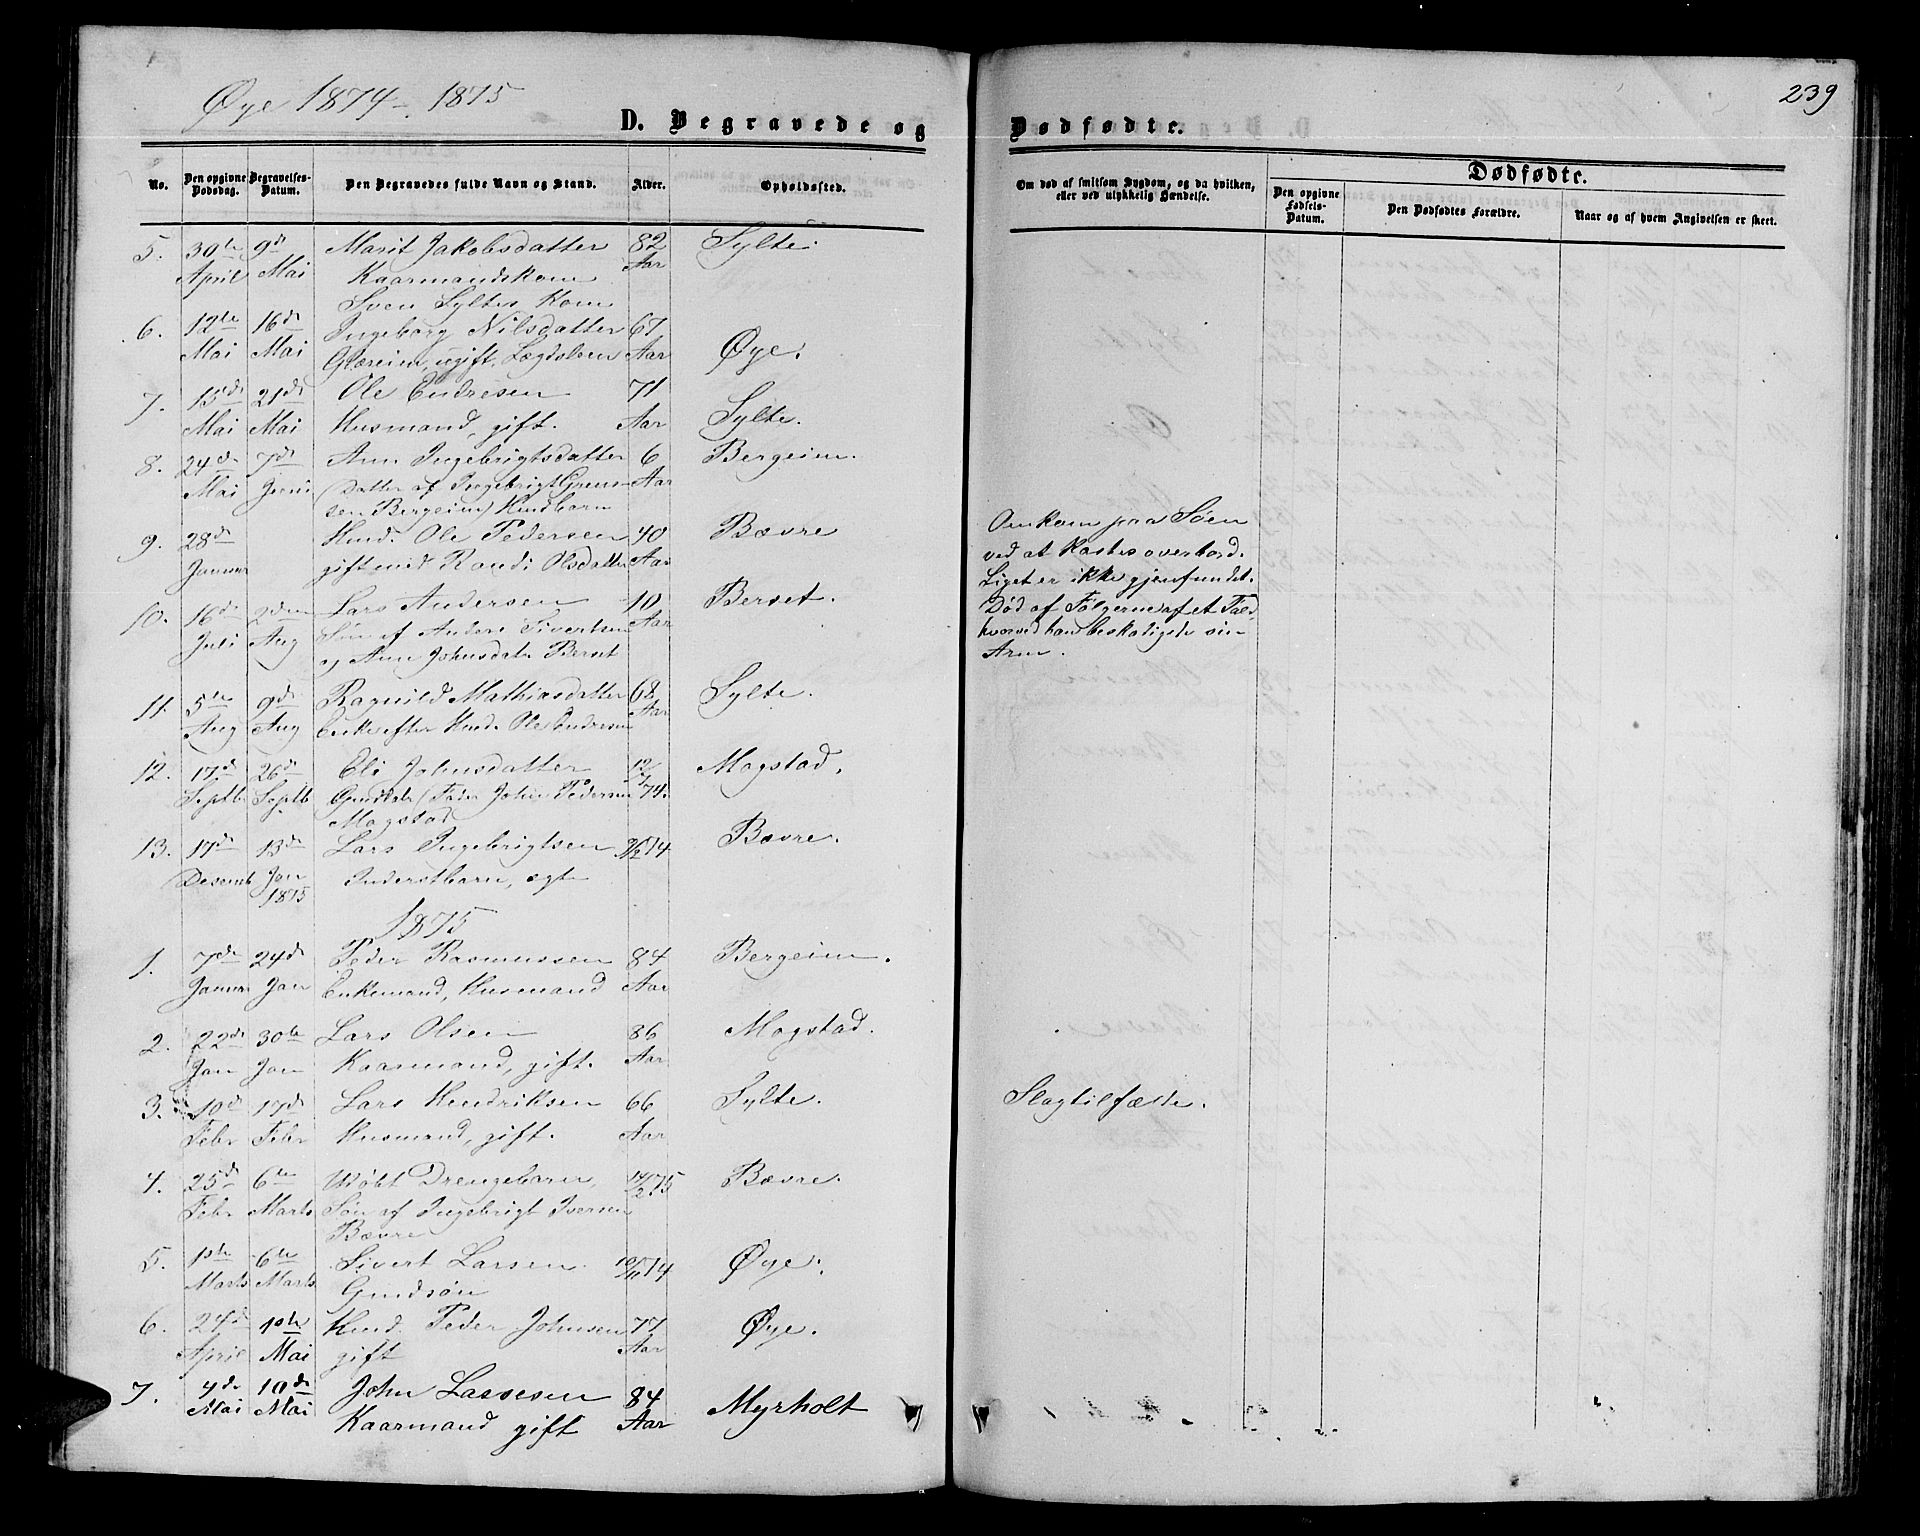 Øye 1874-1875
239
D. Begravede og Dødfødte.
No. Den opgivne Dødsdag. Begravelses-Datum. Den Begravedes fulde Navn og Stand. Alder. Opholdssted.
Om død af smitsom Sygdom, og da hvilken, eller ved ulykkelig Hændelse.
Dødfødte.
Den opgivne Fødsels-Datum. Den Dødfødtes Forældre. Naar og af hvem Angivelsen er skeet.
5. 30te 9de Marit Jakobsdatter 82 Sylte.
April Mai Kaarmandskone Aar
Sven Syltes Kone
6. 12te 16de Ingeborg Nilsdatter 67 Øye.
Mai Mai Glæreim, ugift, Lægdslem Aar
7. 15de 21de Ole Endresen 71 Sylte.
Mai Mai Husmand, gift. Aar
8. 24de 7de Ane Ingebrigtsdatter 6 Bergeim.
Mai Juni (Datter af Ingebrigt Aar
sen Bergeim) Husbarn
9. 28de Husd. Ole Pedersen 40 Bævre Omkom paa Søen
Januar gift med Randi Olsdatter Aar ved at kastes overbord.
Liget er ikke gjenfundet.
10. 16de 2den Lars Andersen 10 Berset. Død af Følgerne af et Fald,
Juli Aug Søn af Anders Sivertsen Aar hvorved han beskadigede sin
og Ane Johnsdatr Berset Arm.
11. 5te 9de Ragnild Mathiasdatter 68 Sylte.
Aug Aug Enke efter Husd. Ole Endresen Aar
12. 17de 26de Eli Johnsdatter 12/7 74. Magstad.
Septb Septb Gmdsdtr (Fader John Pedersen
Magstad
13. 17de 13de Lars Ingebrigtsen 9/12 74 Bævre.
Desemb Jan 1875 Inderstbarn, ægte
1875
1. 7de 24de Peder Rasmussen 84 Bergeim.
Januar Jan Enkemand, Husmand Aar
2. 22de 30te Lars Olsen 86 Magstad.
Jan Jan Kaarmand, gift. Aar
3. 10de 17de Lars Hendriksen 66 Sylte. Slagtilfælde.
Febr Febr Husmand, gift. Aar
4. 25de 6te Udøbt Drengebarn, 14/2 75 Bævre.
Febr Marts Søn af Ingebrigt Iversen
Bævre
5. 1ste 6te Sivert Larsen 10/11 74 Øye.
Marts Marts Gmdsøn
6. 24de 1ste Husd. Peder Johnsen 77 Øye.
April Mai gift Aar
7. 4de 10de John Lassesen 84 Myrholt
Mai Mai Kaarmand gift Aar